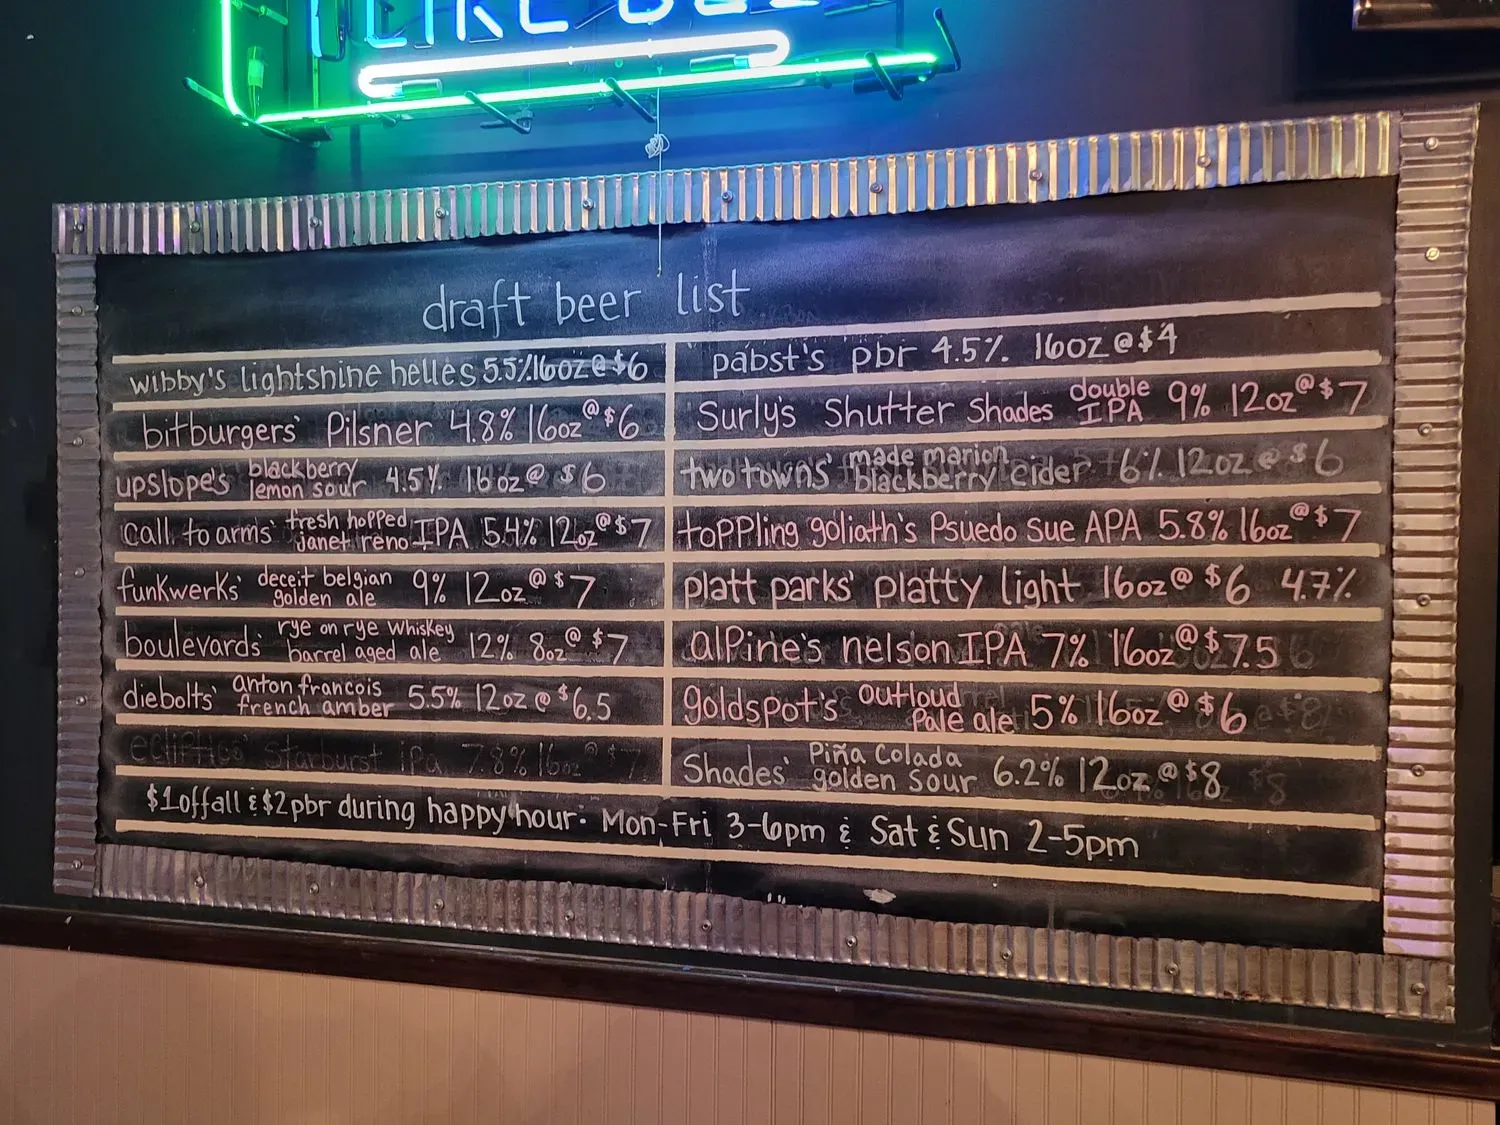 I LIKE BEE
draft beer list
wibby's lightshine helles 5.5% 16oz @ $6
bitburgers' Pilsner 4.8% 16oz @ $6
upslope's blackberry lemon sour 4.5% 16oz @ $6
call to arms' fresh hopped janet reno IPA 5.4% 12oz @ $7
funkwerks' deceit belgian golden ale 9% 12oz @ $7
boulevards' rye on rye whiskey barrel aged ale 12% 8oz @ $7
diebolts' anton francois french amber 5.5% 12oz @ $6.5
ecliptics' Starburst ipa 7.8% 16oz @ $7
pabst's pbr 4.5% 16oz @ $4
Surly's Shutter Shades double IPA 9% 12oz @ $7
two towns' made marion blackberry cider 6% 12oz @ $6
toppling goliath's Psuedo Sue APA 5.8% 16oz @ $7
platt parks' platty light 16oz @ $6 4.7%
alpine's nelson IPA 7% 16oz @ $7.5
goldspot's outloud Pale ale 5% 16oz @ $6
Shades' Piña Colada golden sour 6.2% 12oz @ $8
$1 off all & $2 pbr during happy hour: Mon-Fri 3-6pm & Sat & Sun 2-5pm